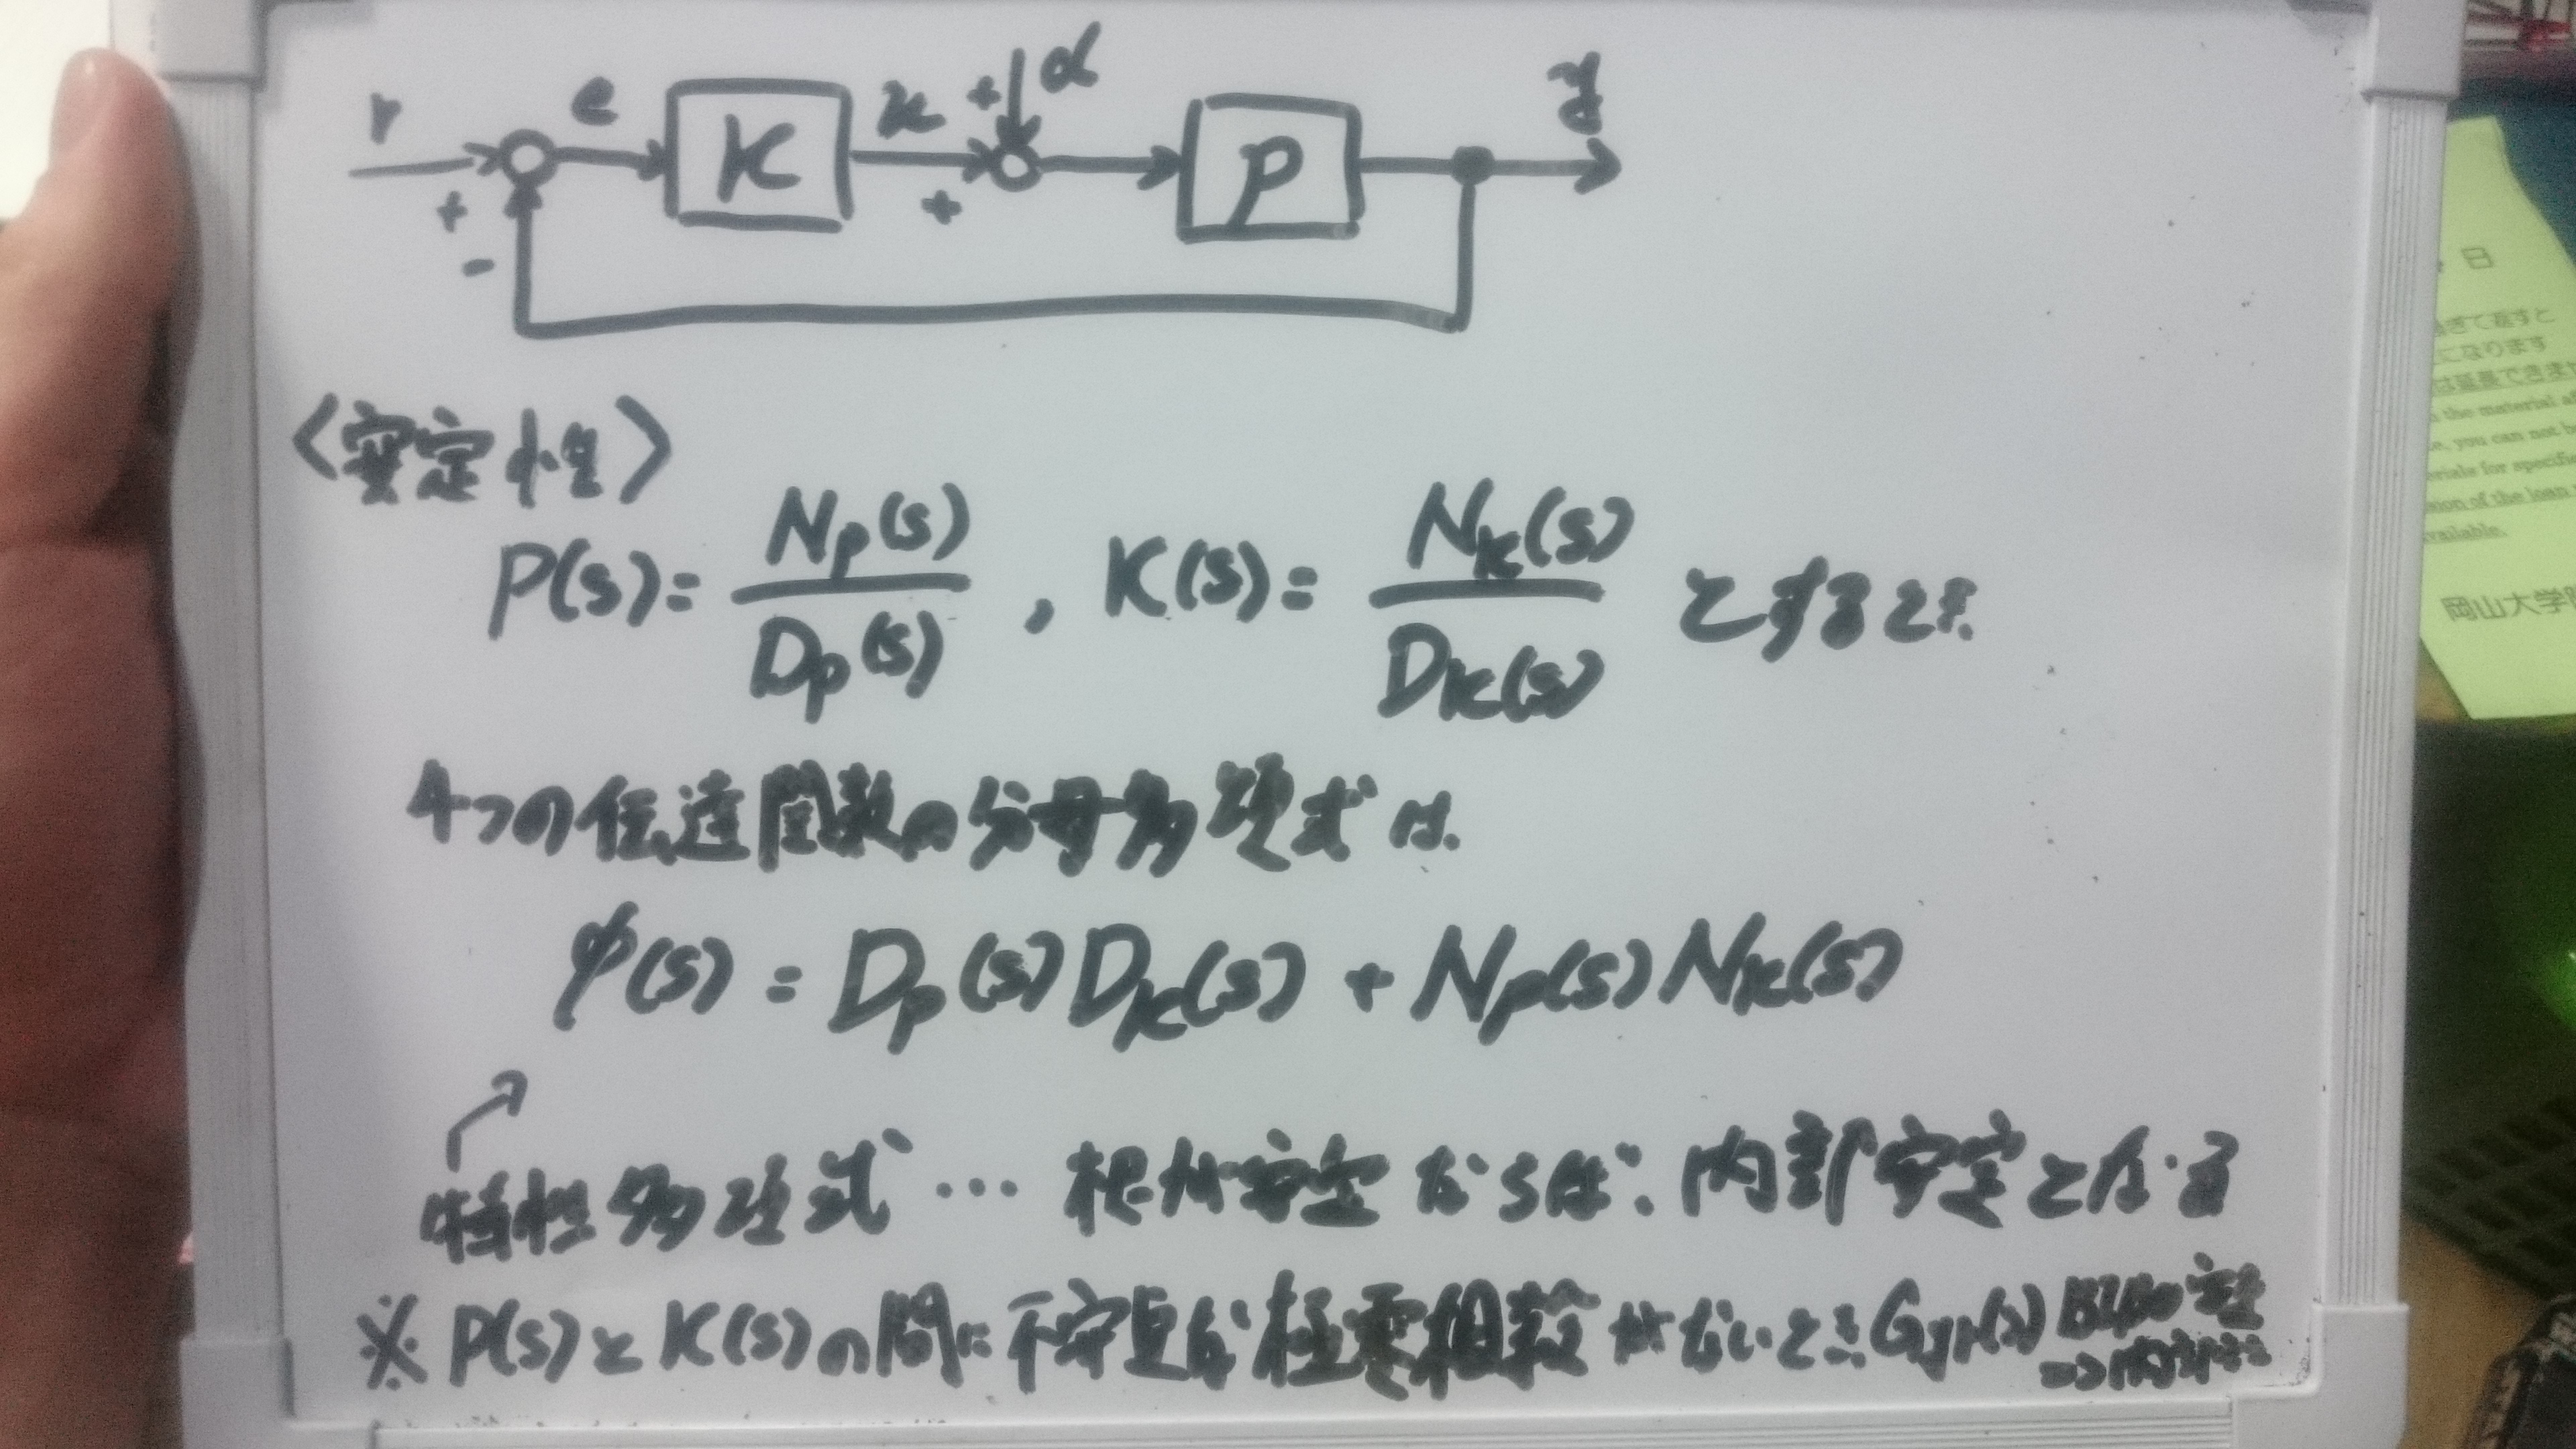 r e K u + d P y
+ +
-
〈安定性〉
P(s) = Np(s) / Dp(s) , K(s) = Nk(s) / Dk(s) とするとき
4つの伝達関数の分母多項式は、
φ(s) = Dp(s)Dk(s) + Np(s)Nk(s)
特性多項式 … 根が安定ならば、内部安定となる
※ P(s)とK(s)の間に不安定な極零相殺がないとき Gyr(s) BIBO安定
⇒内部安定
日
ぎて返すと
になります
は延長できませ
the material
you can not be
for specific
of the loan
available.
岡山大学